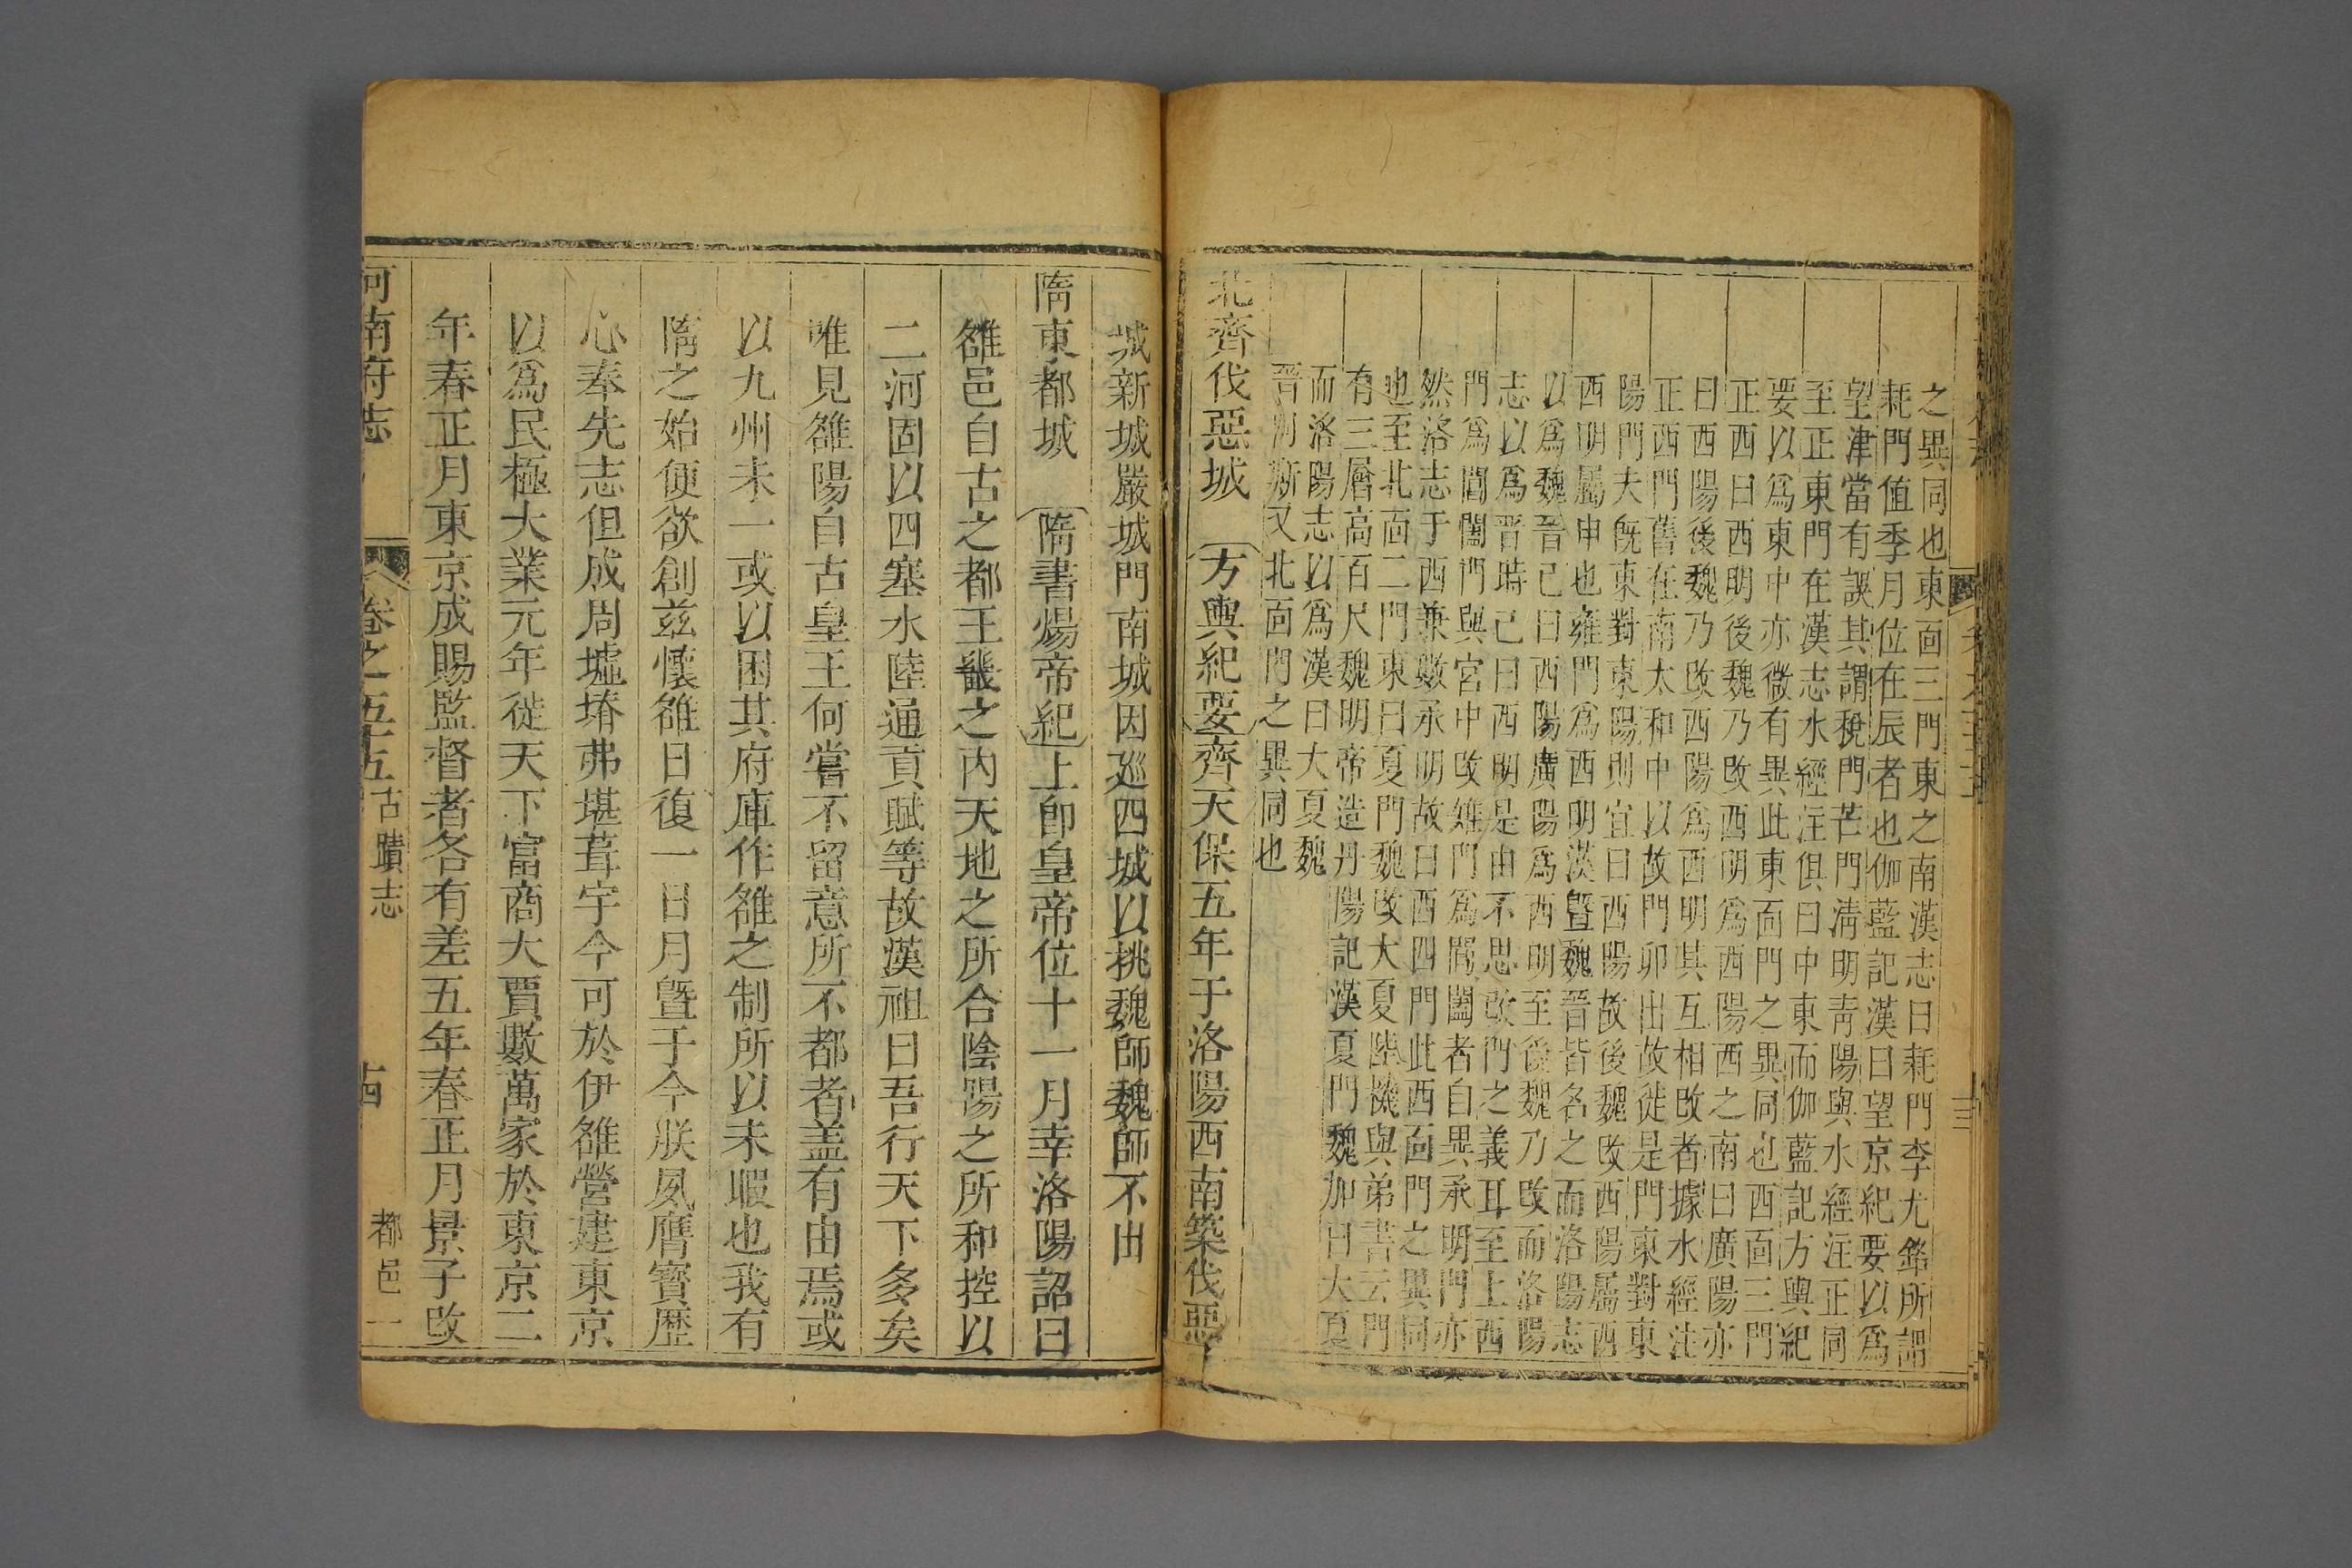 之異同也東面三門東之南漢志曰耗門李尤銘所謂
耗門值季月位在辰者也伽藍記漢曰望京紀要以爲
望津當有誤其謂稅門芒門淸明靑陽與水經注正同
至正東門在漢志水經注俱曰中東而伽藍記方輿紀
要以爲東中亦微有異此東面門之異同也西面三門
正西曰西明後魏乃改西明爲西陽西之南曰廣陽亦
曰西陽後魏乃改西陽爲西明其互相改者據水經注
正西門舊在南太和中以故門卯出故徙是門東對東
陽門夫旣東對東陽則宜曰西陽故後魏改西陽屬西
西明屬申也雍門爲西明漢曁魏晉皆名之而洛陽志
以爲魏晉已曰西陽廣陽爲西明至後魏乃改而洛陽
志以爲晉時已曰西明是由不思改門之義耳至上西
門爲閶闔門與宮中改雉門爲閶闔者自異承明門亦
然洛志于西兼數承明故曰西四門此西面門之異同
也至北面二門東曰夏門魏改大夏陸機與弟書云門
有三層高百尺魏明帝造丹陽記漢夏門魏加曰大夏
而洛陽志以爲漢曰大夏魏
晉則斯又北面門之異同也
北齊伐惡城 〔方輿紀要〕齊天保五年于洛陽西南築伐惡
城新城嚴城門南城因巡四城以挑魏師魏師不出
隋東都城 〔隋書煬帝紀〕上卽皇帝位十一月幸洛陽詔曰
雒邑自古之都王畿之內天地之所合陰陽之所和控以
二河固以四塞水陸通貢賦等故漢祖曰吾行天下多矣
唯見雒陽自古皇王何嘗不留意所不都者盖有由焉或
以九州未一或以困其府庫作雒之制所以未暇也我有
隋之始便欲創兹懷雒日復一日月曁于今朕夙膺寶歷
心奉先志但成周墟塉弗堪葺宇今可於伊雒營建東京
以爲民極大業元年徙天下富商大賈數萬家於東京二
年春正月東京成賜監督者各有差五年春正月景子改
河南府志 卷之五十五 古蹟志 十四 都邑一